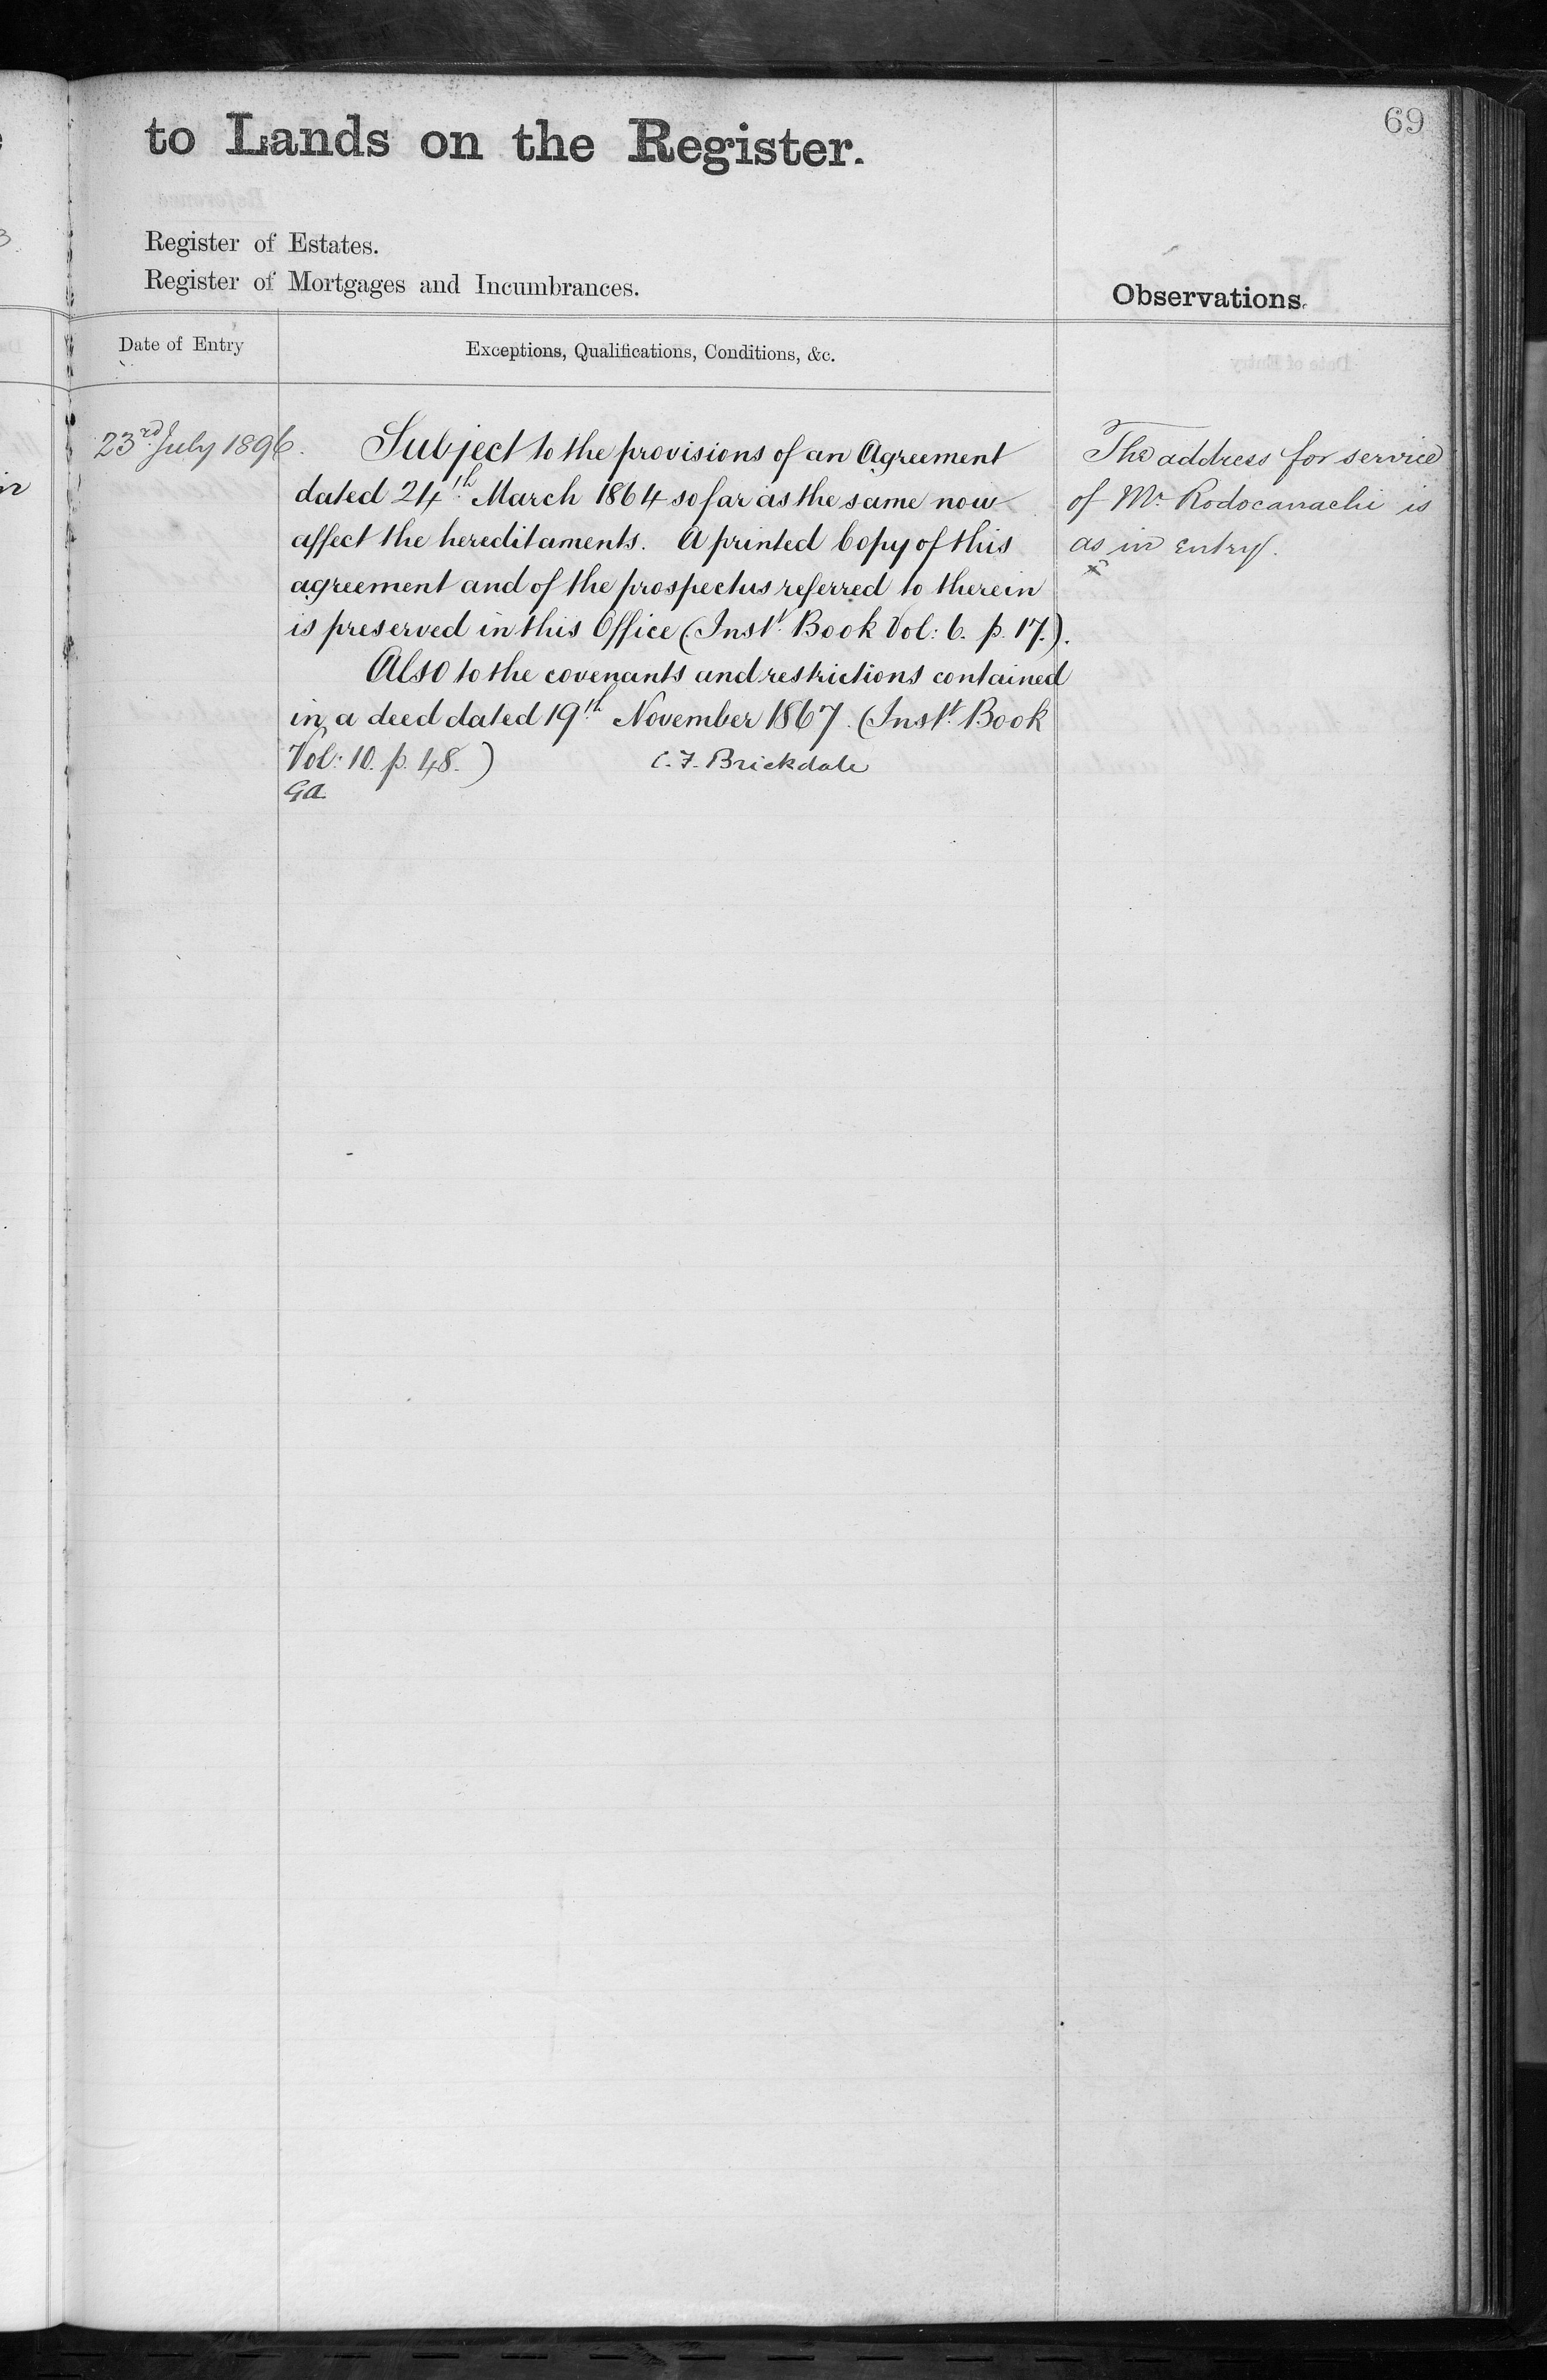 69
to Lands on the Register.
Register of Estates.
Register of Mortgages and Incumbrances.
Observations.
Date of Entry
Exceptions, Qualifications, Conditions, &c.
23rd July 1896.
Subject to the provisions of an Agreement
dated 24th March 1864 so far as the same now
affect the hereditaments. A printed Copy of this
agreement and of the prospectus referred to therein
is preserved in this Office (Inst. Book Vol: 6. p. 17.).
Also to the covenants and restrictions contained
in a deed dated 19th November 1867. (Inst. Book
Vol: 10. p. 48.)
C. F. Brickdale
Ga.
The address for service
of Mr. Rodocanachi is
as in Entry.